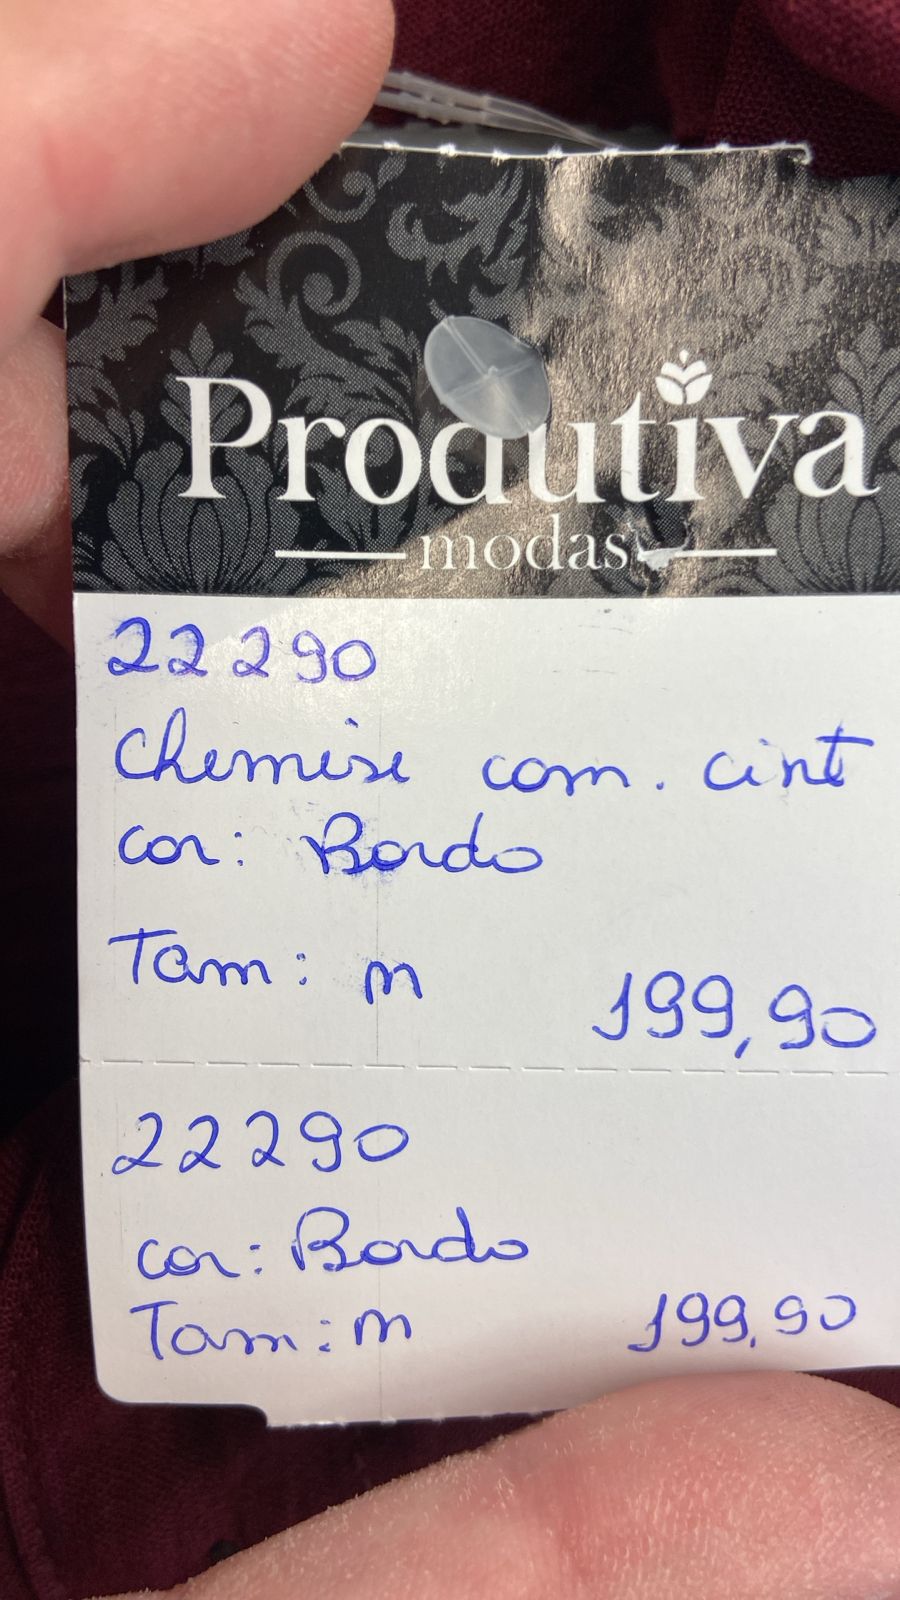 Produtiva
modas
22290
Chemise com. cint
cor: Bordo
Tam: m 199,90
22290
cor: Bordo
Tam: m 199,90